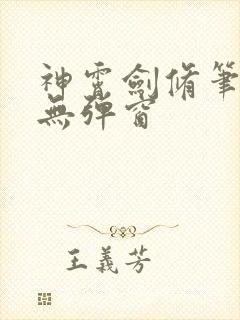 神霄劍脩筆
無彈窗
王義芳